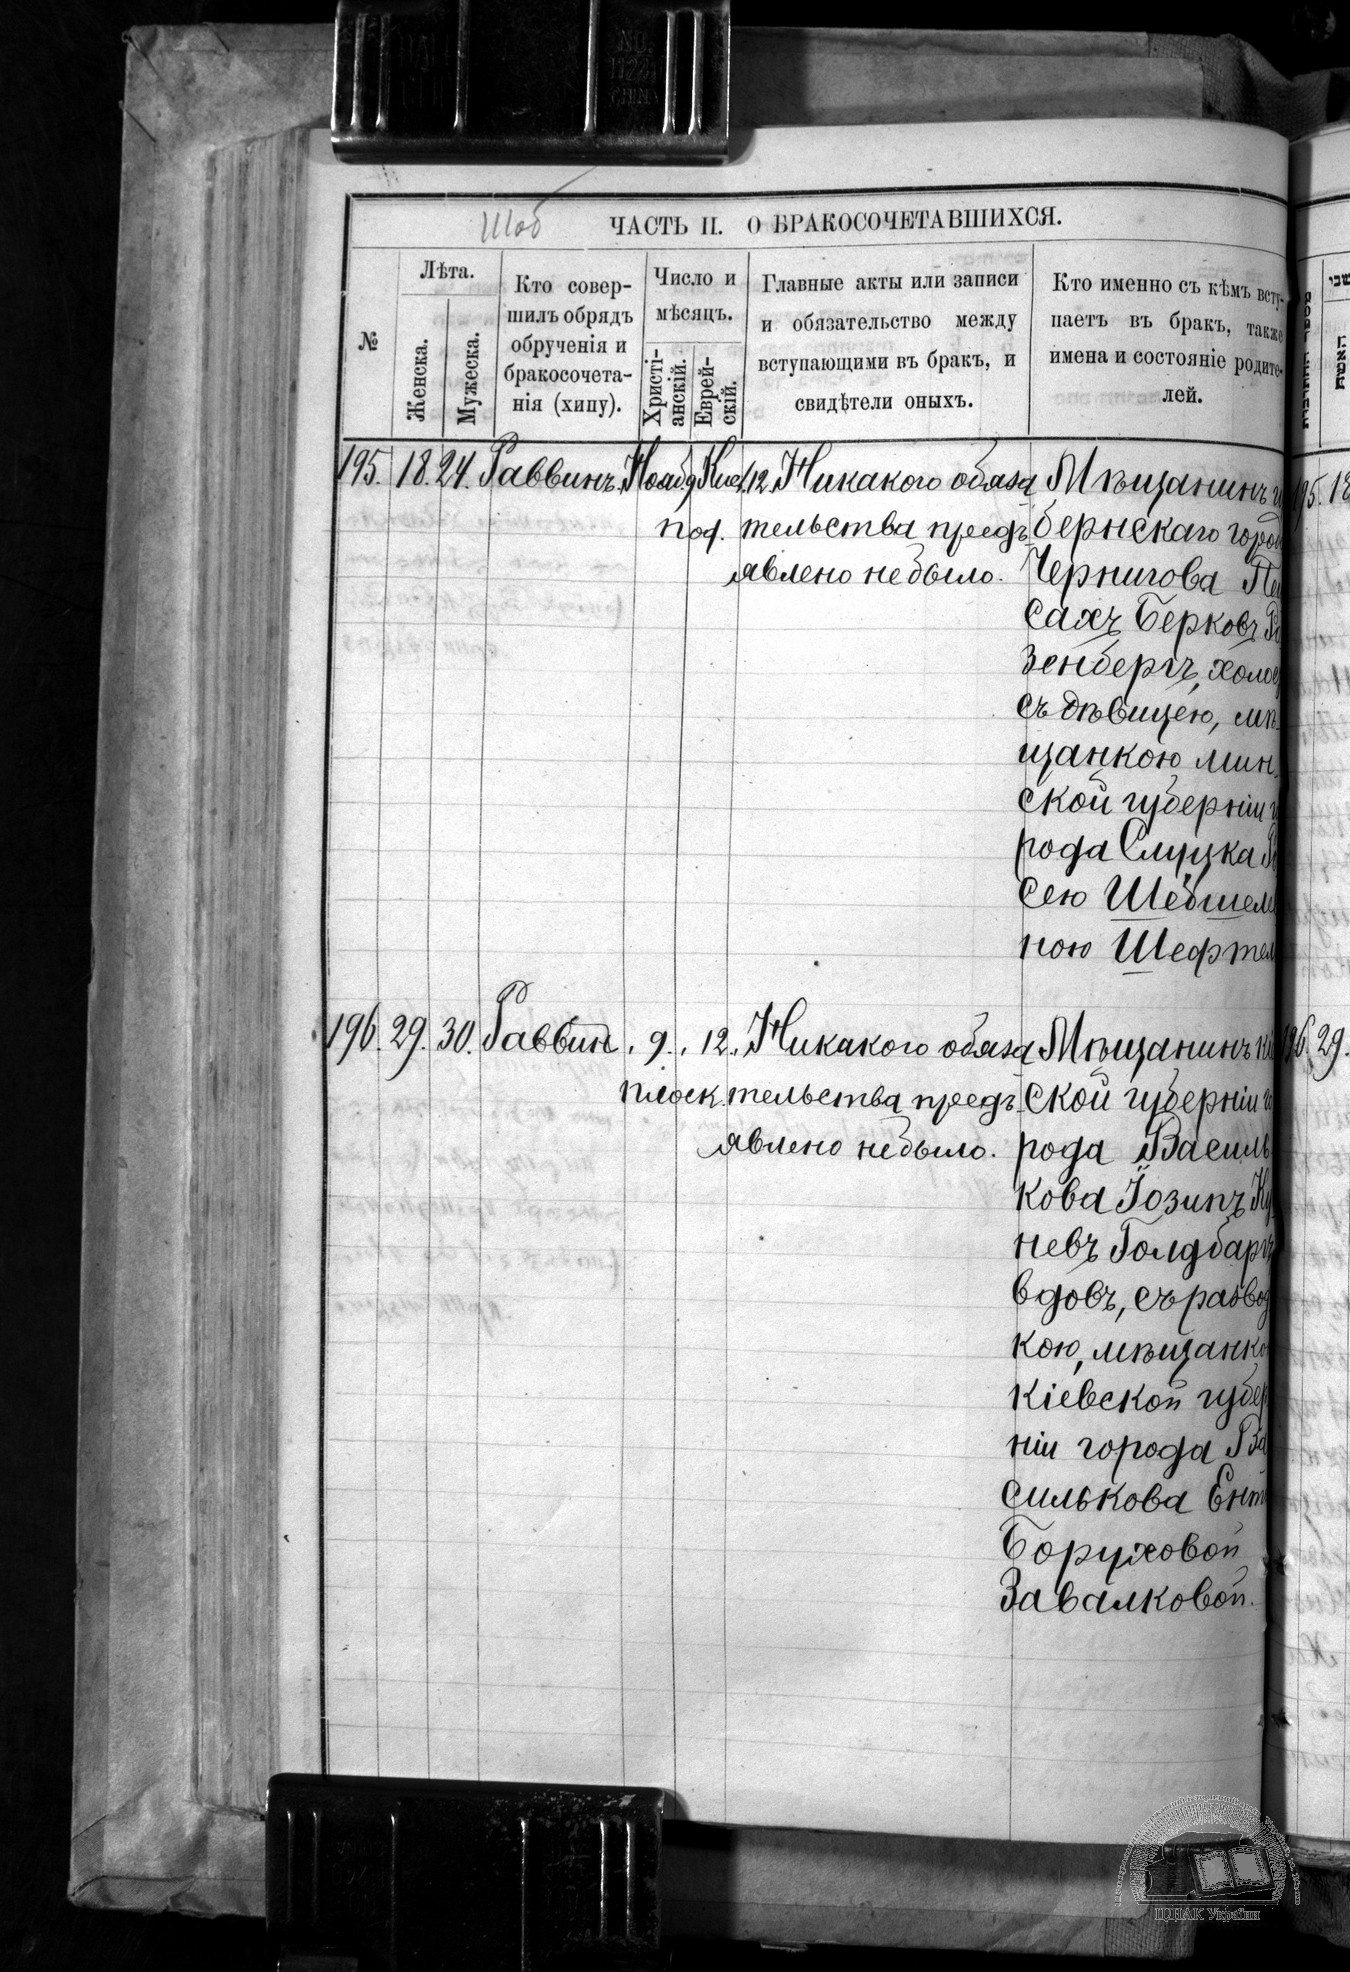 Шоб
ЧАСТЬ II. О БРАКОСОЧЕТАВШИХСЯ.
№
Лѣта.
Женска.
Мужеска.
Кто совер-
шилъ обрядъ
обрученія и
бракосочета-
нія (хипу).
Число и
мѣсяцъ.
Христі-
анскій.
Еврей-
скій.
Главные акты или записи
и обязательство между
вступающими въ бракъ, и
свидѣтели оныхъ.
Кто именно съ кѣмъ всту-
паетъ въ бракъ, также
имена и состояніе родите-
лей.
195. 18. 24. Раввинъ. 9 12. Никакого обяза
тельства предъ
явлено небыло.
Мѣщанинъ
бернскаго город
Чернигова Пей
сахъ Берковъ Ро
зенбергъ, холос
съ дѣвицею, мѣ
щанкою мин
ской губерніи
рода Слуцка
сею Шебшеле
ною Шефтел
196. 29. 30. Раввин. 9. 12. Никакого обяза
плоск. тельства предъ
явлено небыло.
Мѣщанинъ кі
ской губерніи го
рода Василь
кова Іозипъ Ку
невъ Голдбаргъ
вдовъ, съ развод
кою, мѣщанко
Кіевской губер
ніи города Ва
силькова Ент
Боруховой
Завалковой.
195. 18
196. 29.
ЦНАК України